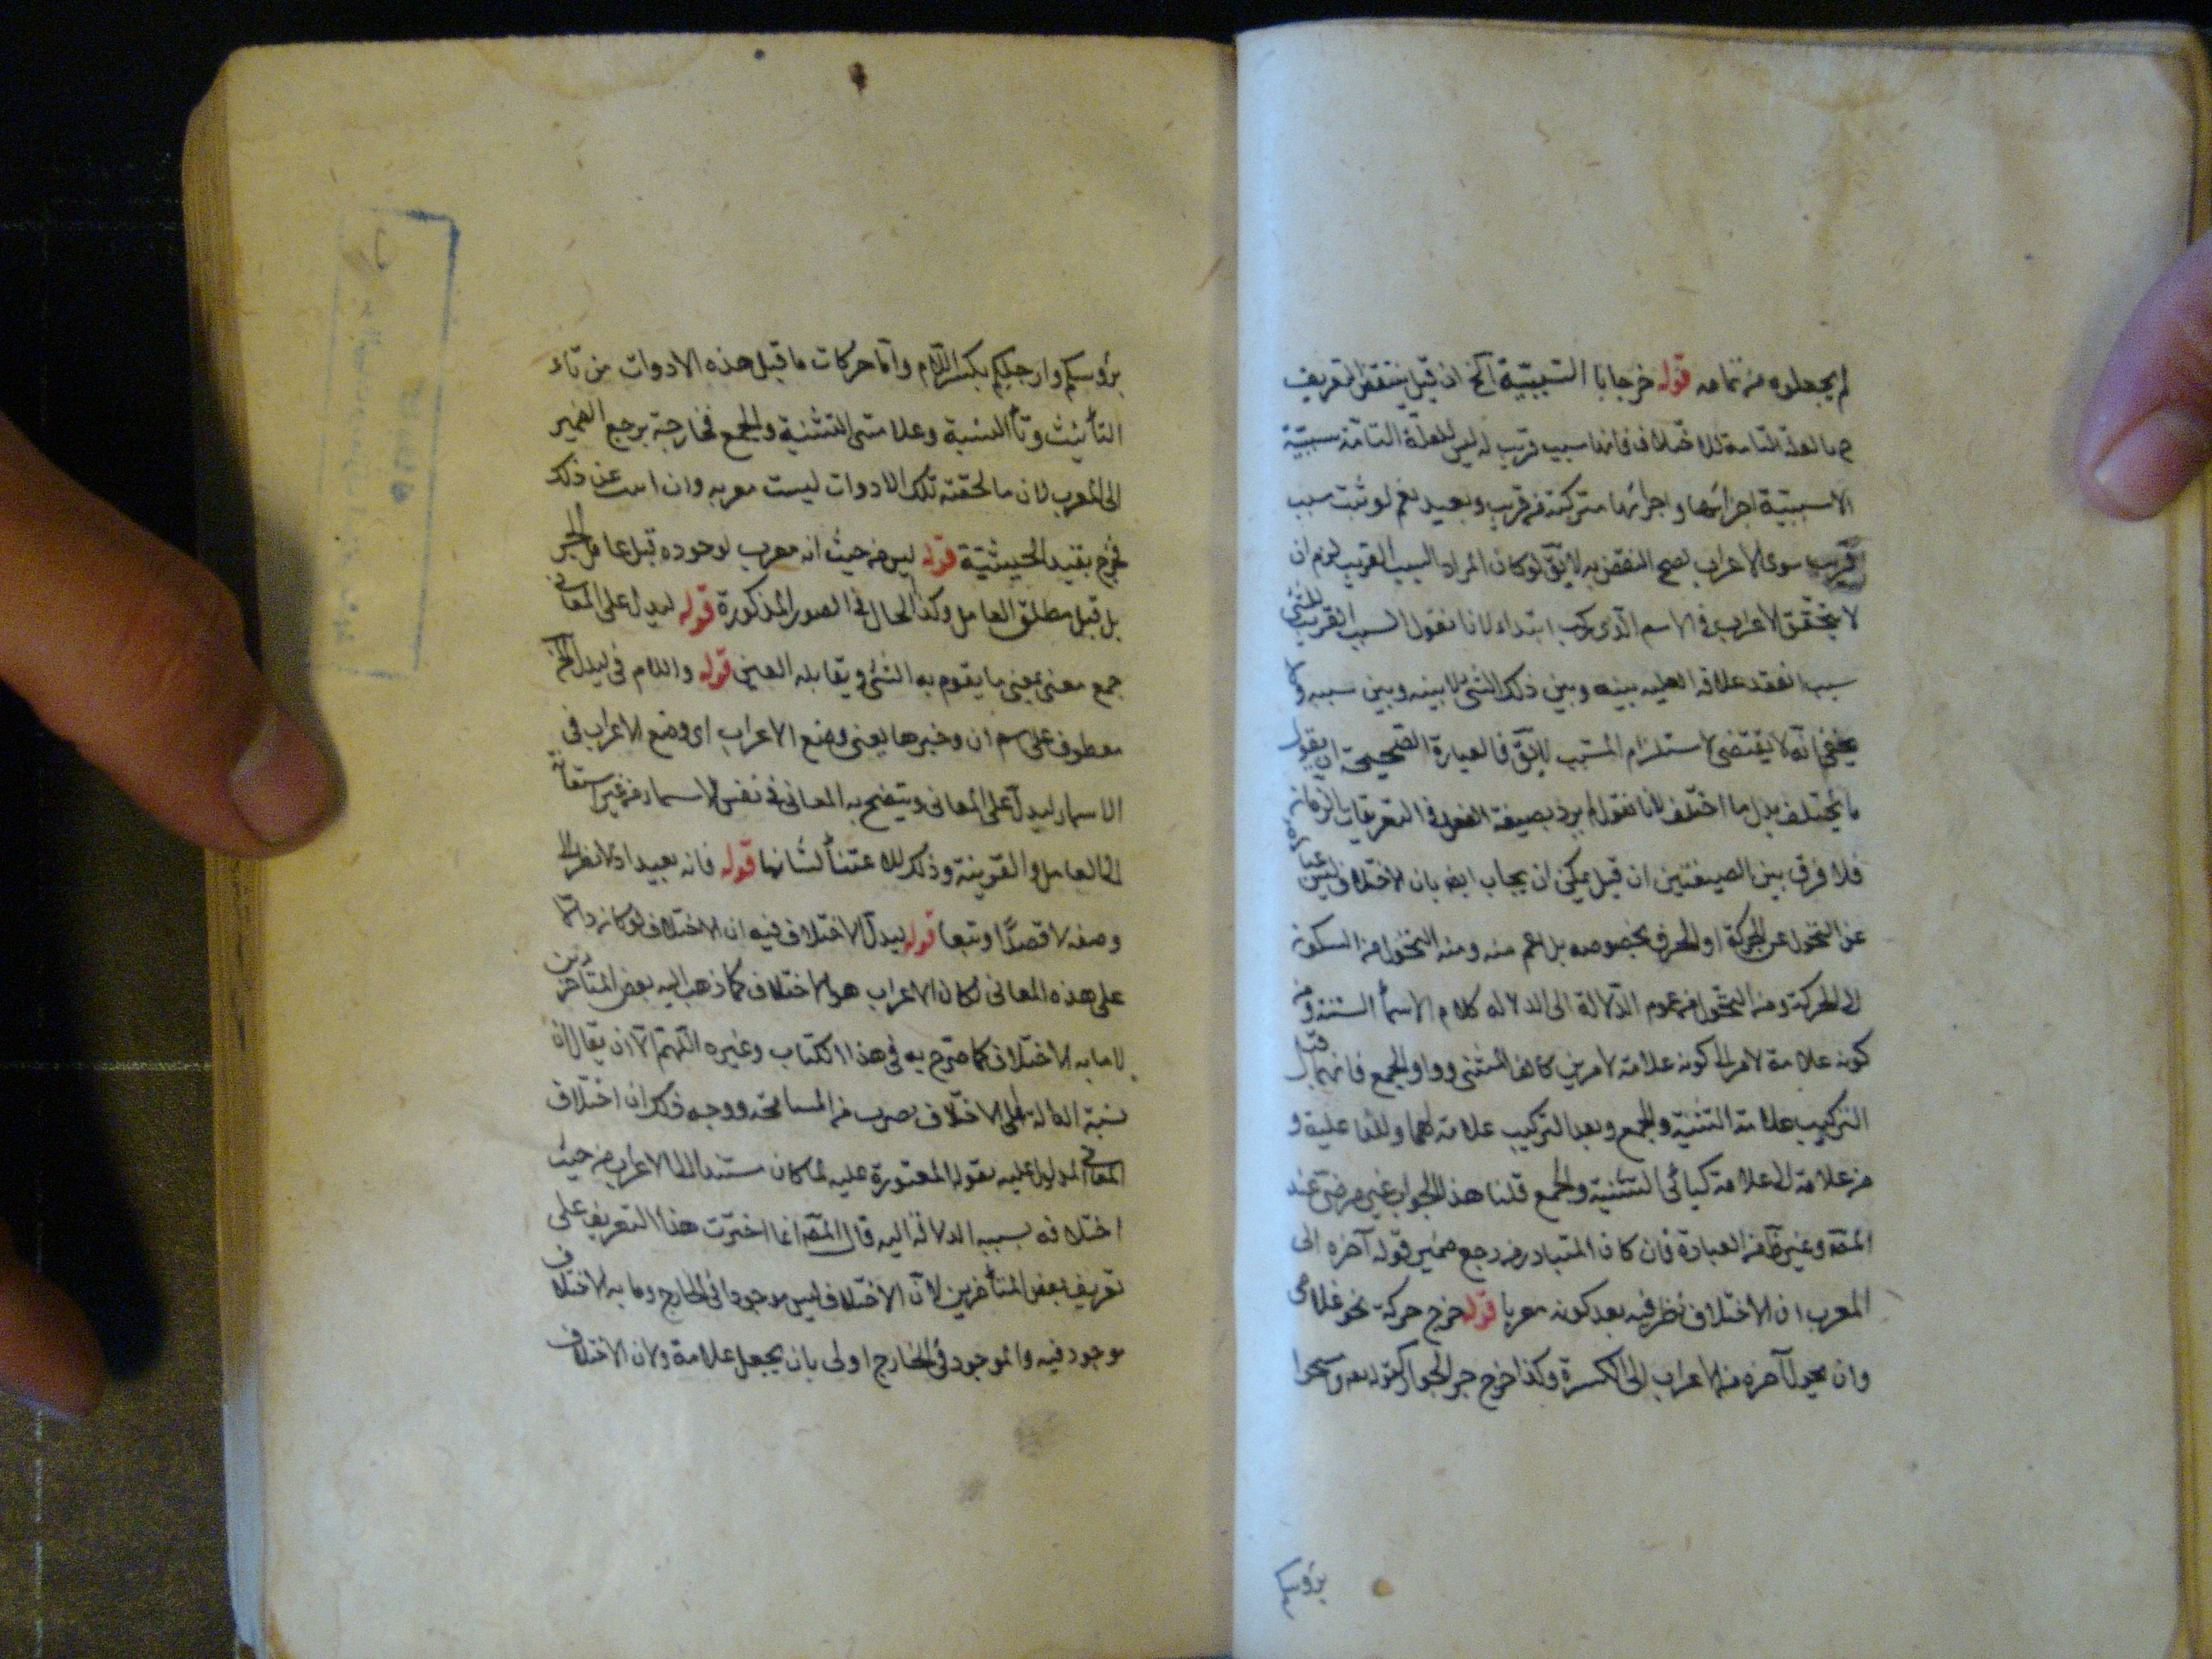 لم يجعلوه من تمامه قوله خرجا بالسببية آلخ ان قيل ينتقض التعريف
بالعلة التامة للاختلاف فانها سبب قريب له ليس للعلة التامة سببية
الا سببية اجزائها واجزائها متركبة من قريب وبعيد نعم لو ثبت سبب
قريب سوى الاعراب لصح النقض به لا يق لو كان المراد السبب القريب لزم ان
لا يتحقق الاعراب في الاسم الذي ركب ابتداء لانا نقول السبب القريب للشئ
سبب انعقد علاقة العلية بينه وبين ذلك الشئ بلا بينه وبين سببه ولا
يخفى انه لا يقتضى لاستلزام المسبب لا يق فالعبارة الصحيحة ان يقول
ما يختلف بدل ما اختلف لانا نقول لم يرد بصيغة الفعل في التعريفات الزمان
فلا فرق بين الصيغتين ان قيل يمكن ان يجاب ايض بان الاختلاف ليس عبارة
عن التحول عن الحركة او الحرف بخصوصه بل اعم منه ومنه التحول من السكون
الى الحركة ومنه التحول من عدم الدلالة الى الدلالة كلام الاسماء الستة ومن
كونه علامة لامر الى كونه علامة لامرين كالف المثنى وواو الجمع فانهما قبل
التركيب علامة التثنية والجمع وبعد التركيب علامة لهما وللفاعلية و
من علامة الى علامة كيائى التثنية والجمع قلنا هذا الجواب غير مرضى عند
المصّ وغير ظ من العبارة فان كان المتبادر من رجع ضمير قوله آخره الى
المعرب ان الاختلاف نظر فيه بعد كونه معربا قوله خرج حركة نحو غلامى
وان تحول آخره من الاعراب الى الكسرة وكذا خرج جر الجوار كقوله تعه وامسحوا
برؤسكم
برؤسكم وارجلكم بكسر اللام واما حركات ما قبل هذه الادوات من تاء
التأنيث وياء النسبة وعلامتى التثنية والجمع فخارجة برجع الضمير
الى المعرب لان ما لحقته تلك الادوات ليست معربه وان ابيت عن ذلك
فخرج بقيد الحيثية قوله ليس من حيث انه معرب لوجوده قبل عامل الجر
بل قبل مطلق العامل وكذا الحال في الصور المذكورة قوله ليدل على المعانى
جمع معنى بمعنى ما يقوم به الشئ ويقابله العين قوله واللام في ليدل آلخ
معطوف على اسم ان وخبرها يعنى وضع الاعراب اى وضع الاعراب في
الاسماء ليدل على المعانى ويتضح به المعانى في نفس الاسماء من غير استعانة
الى العامل والقرينة وذكر للاعتناء لشانها قوله فانه بعيد اذ لا نظر الى
وصفه لا قصدا وتبعا قوله ليدل الاختلاف فيه ان الاختلاف لو كان دالا
على هذه المعانى لكان الاعراب هو الاختلاف كما ذهب اليه بعض المتأخرين
لا ما به الاختلاف كما صرح به في هذا الكتاب وغيره اللهم الا ان يقال ان
نسبة الدلالة الى الاختلاف ضرب من المسامحة ووجه ذلك ان اختلاف
المعانى المدلول عليه بقوله المعتورة عليه لما كان مستندا الى الاعراب من حيث
اختلافه بسببه الدلالة اليه قال المصّ انما اخترت هذا التعريف على
تعريف بعض المتأخرين لان الاختلاف ليس موجودا في الخارج وما به الاختلاف
موجود فيه والموجود في الخارج اولى بان يجعل علامة ولان الاختلاف